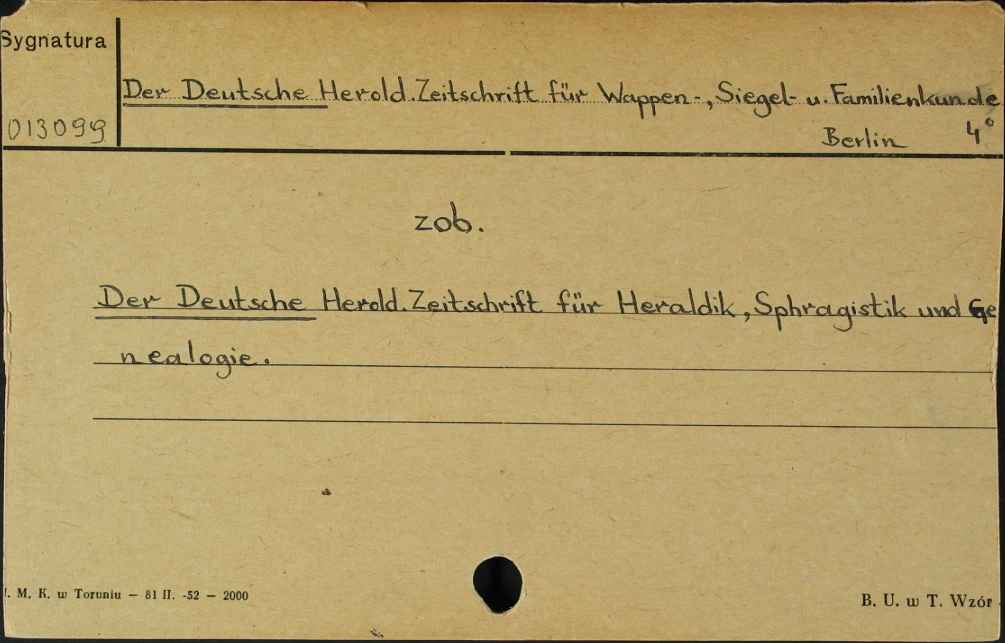 Sygnatura
Der Deutsche Herold. Zeitschrift für Wappen-, Siegel- u. Familienkunde
013099
Berlin 4°
zob.
Der Deutsche Herold. Zeitschrift für Heraldik, Sphragistik und Ge
nealogie.
. M. K. w Toruniu — 81 II. -52 — 2000
B. U. w T. Wzór